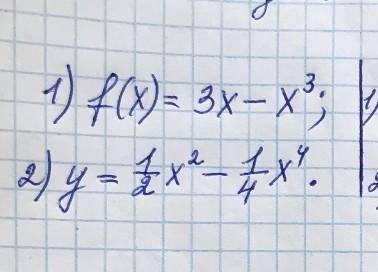 1) f(x) = 3x - x³;
2) y = 1/2 x² - 1/4 x⁴.
1)